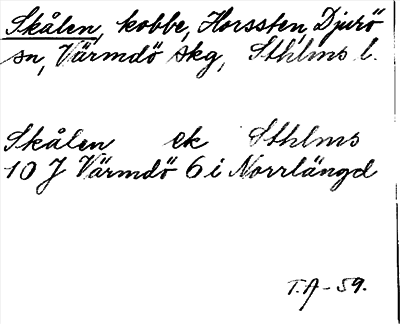 Skålen, kobbe, Horssten, Djurö
sn, Värmdö skg, Sthlms l.
Skålen ek Sthlms
10 J Värmdö 6 i Norrlängd
T.A-59.